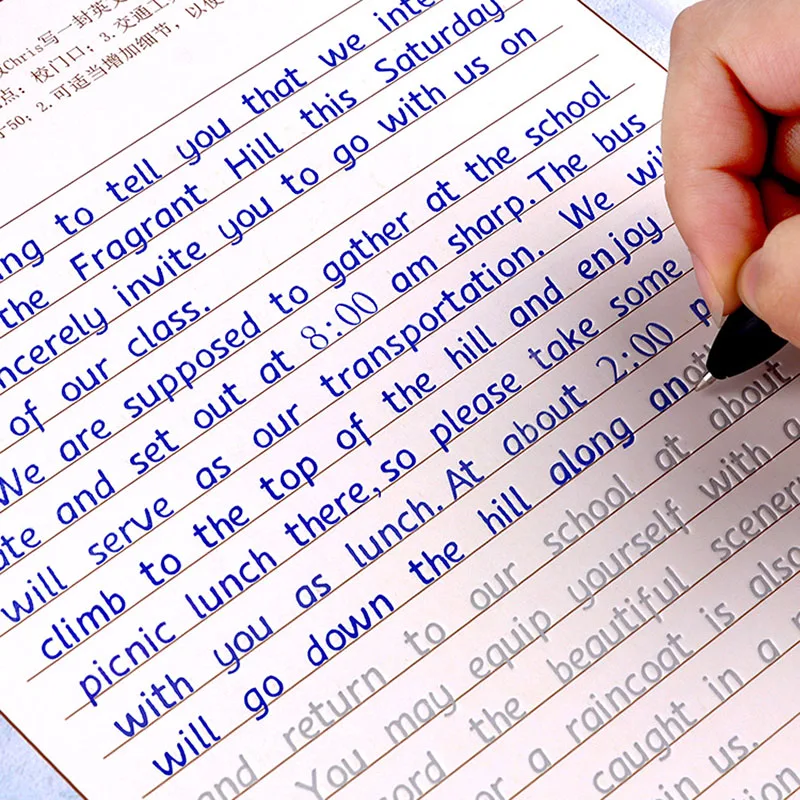 Chris写一封英文
点：校门口；3.交通工
50；2.可适当增加细节，以使
to tell you that we inte
the Fragrant Hill this Saturday
ncerely invite you to go with us on
of our class.
We are supposed to gather at the school
ate and set out at 8:00 am sharp. The bus
will serve as our transportation. We wil
climb to the top of the hill and enjoy
picnic lunch there, so please take some
with you as lunch. At about 2:00 p
will go down the hill along anoth
and return to our school at about
You may equip yourself with a
ord the beautiful scener
or a raincoat is also
caught in a
in us.